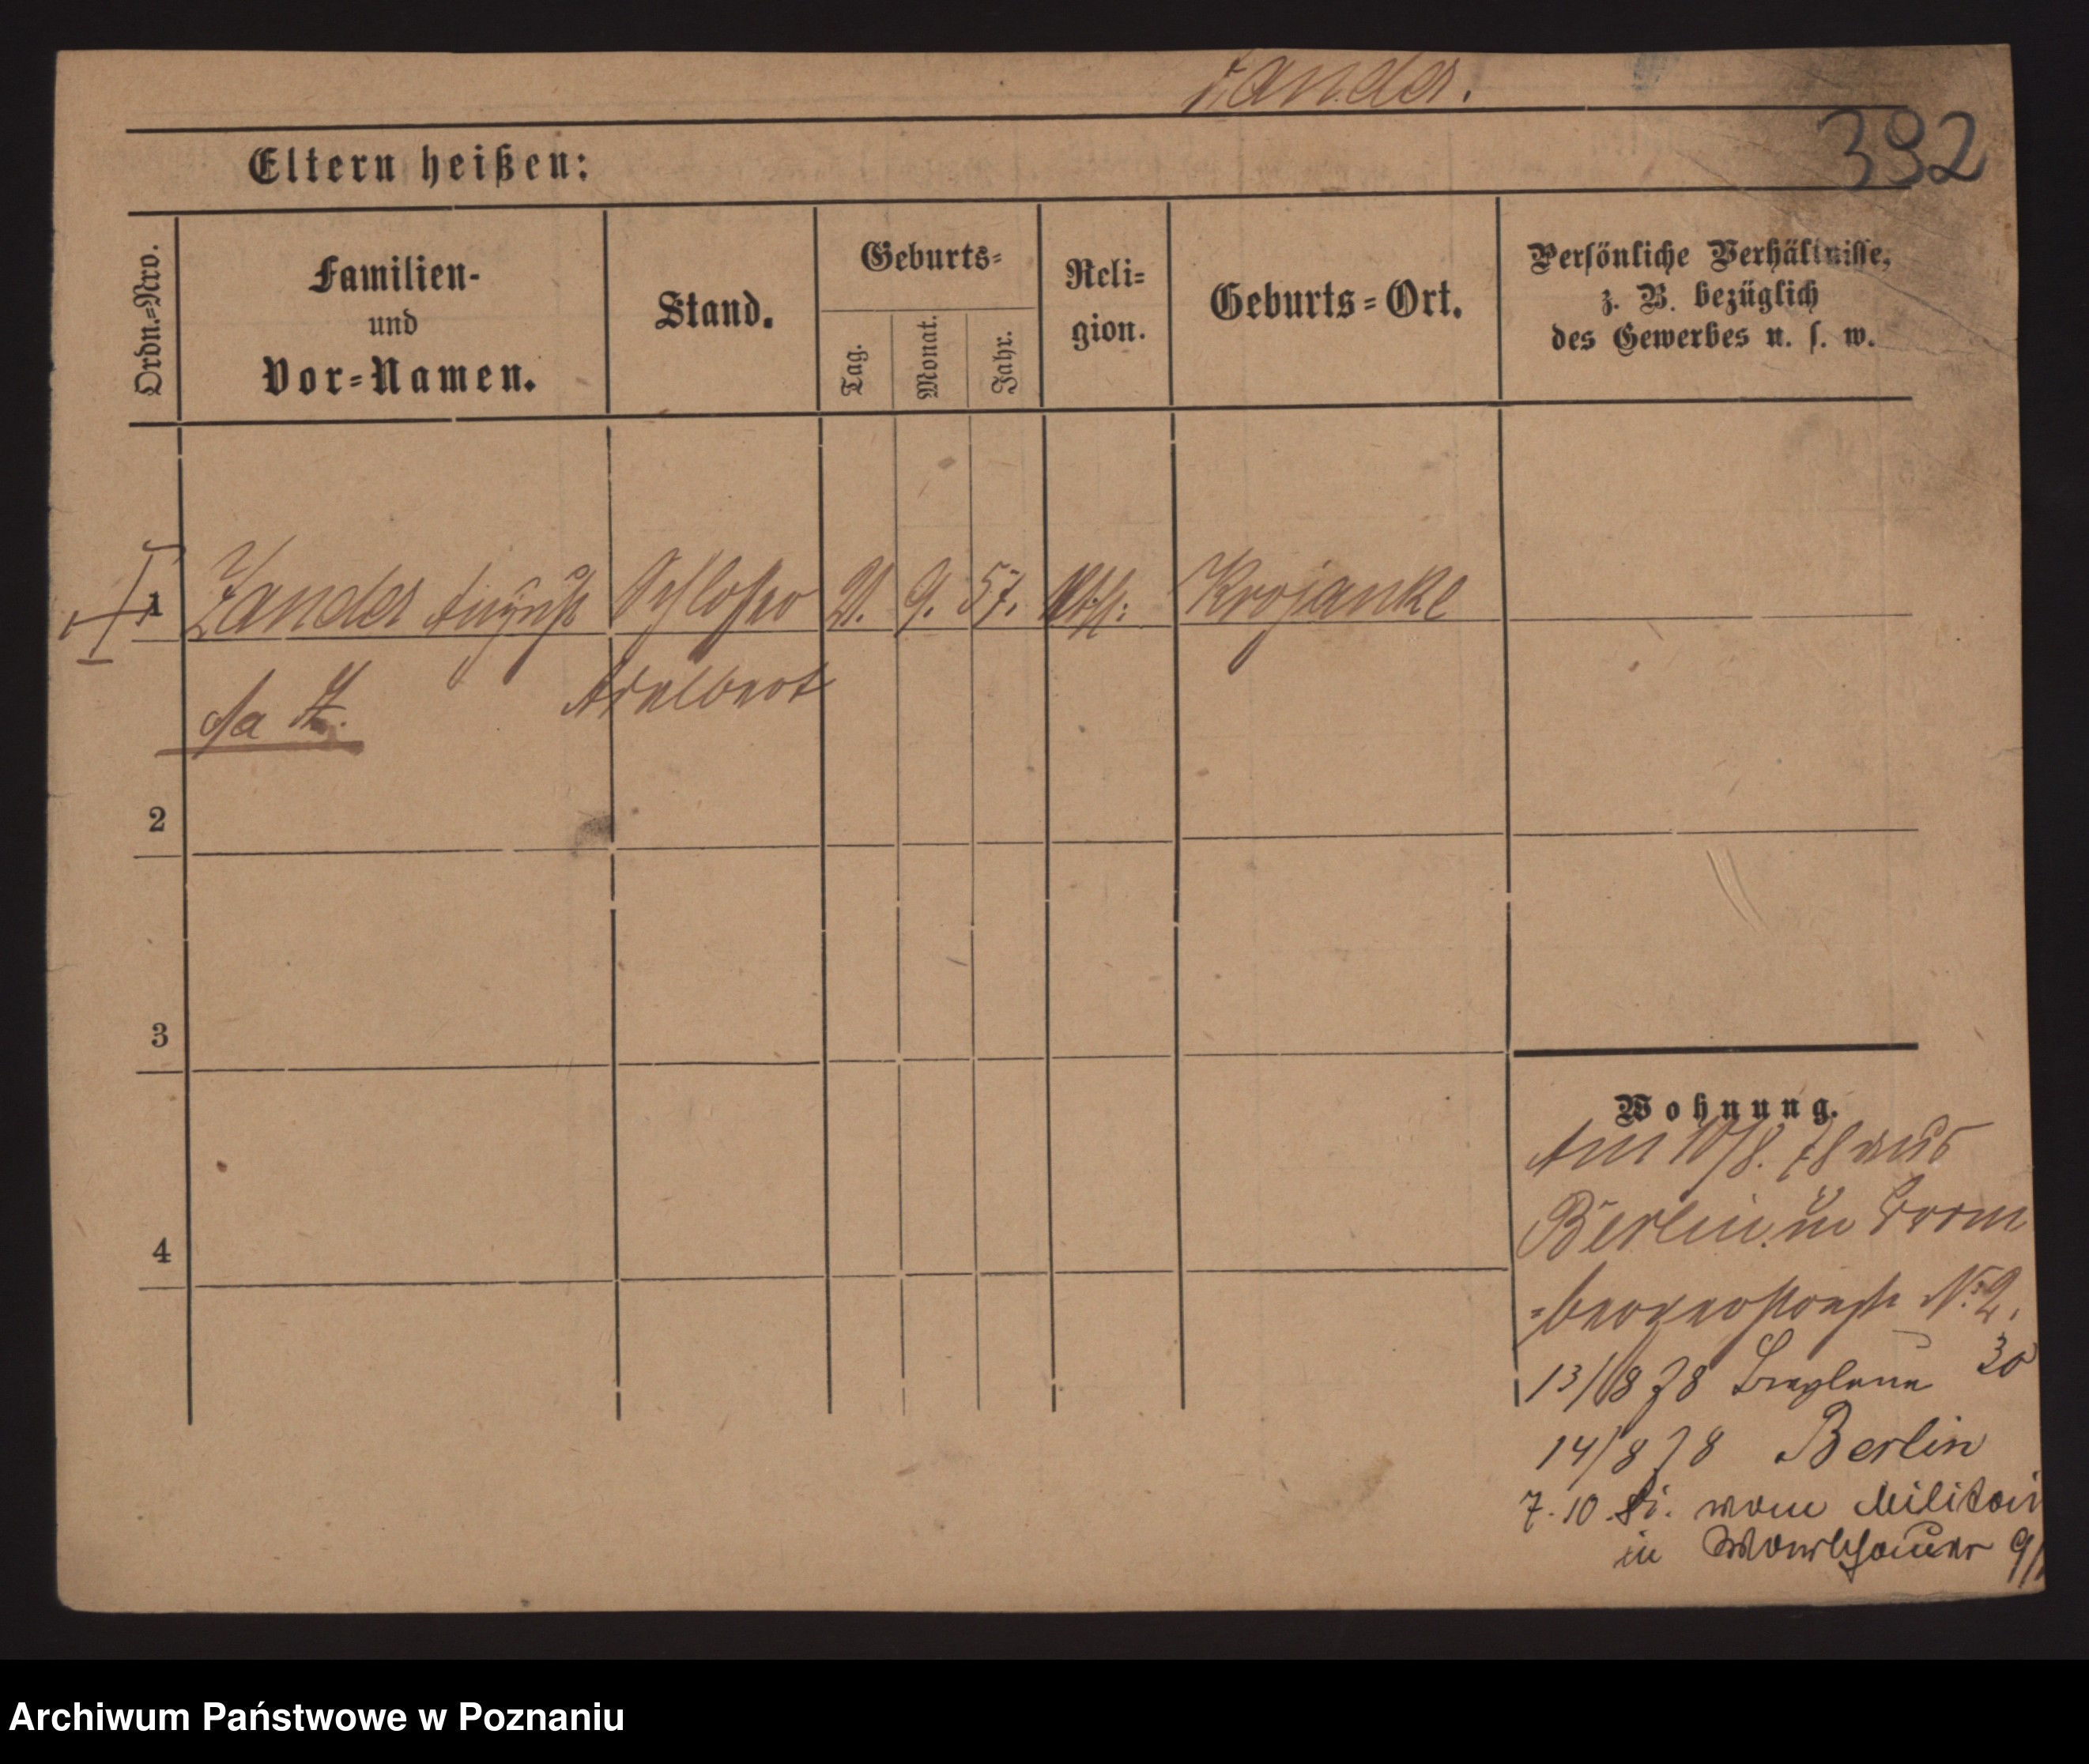 Zander.
392
Eltern heißen:
Ordn.=Nro.
Familien-
und
Vor=Namen.
Stand.
Geburts=
Tag.
Monat.
Jahr.
Reli=
gion.
Geburts=Ort.
Persönliche Verhältnisse,
z. B. bezüglich
des Gewerbes u. s. w.
1 Zander August Schlosser 21. 9. 57. Kath: Krojanke
Adalbert
2
3
4
Wohnung.
Am 10/8. 78 aus
Berlin in Brom
=bergerstraße No 2.
13/8 78 30
14/8 78 Berlin
7. 10. vom Militair
in
Archiwum Państwowe w Poznaniu